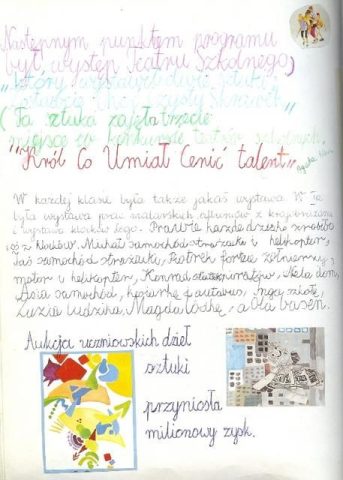 Następnym punktem programu
był występ Teatru Szkolnego
który wystawił dwie sztuki
(Ta sztuka zajęła trzecie
miejsce w konkursie teatrów szkolnych.
"Król Co Umiał Cenić talent"
W każdej klasie była także jakaś wystawa. W Ia
była wystawa prac malarskich
i wystawa klocków lego. Prawie każde dziecko zrobiło
coś z klocków. Michał samochód strażacki i helikopter,
Jaś samochód strażacki, Piotrek fortec, żołnierzy,
motor i helikopter, Konrad statek piratów, Nela dom,
Asia samochód, koparkę i autobus, Inga szkołę,
Luzia ludzika, Magda łódkę, a Ola basen.
Aukcja uczniowskich dzieł
sztuki
przyniosła
milionowy zysk.